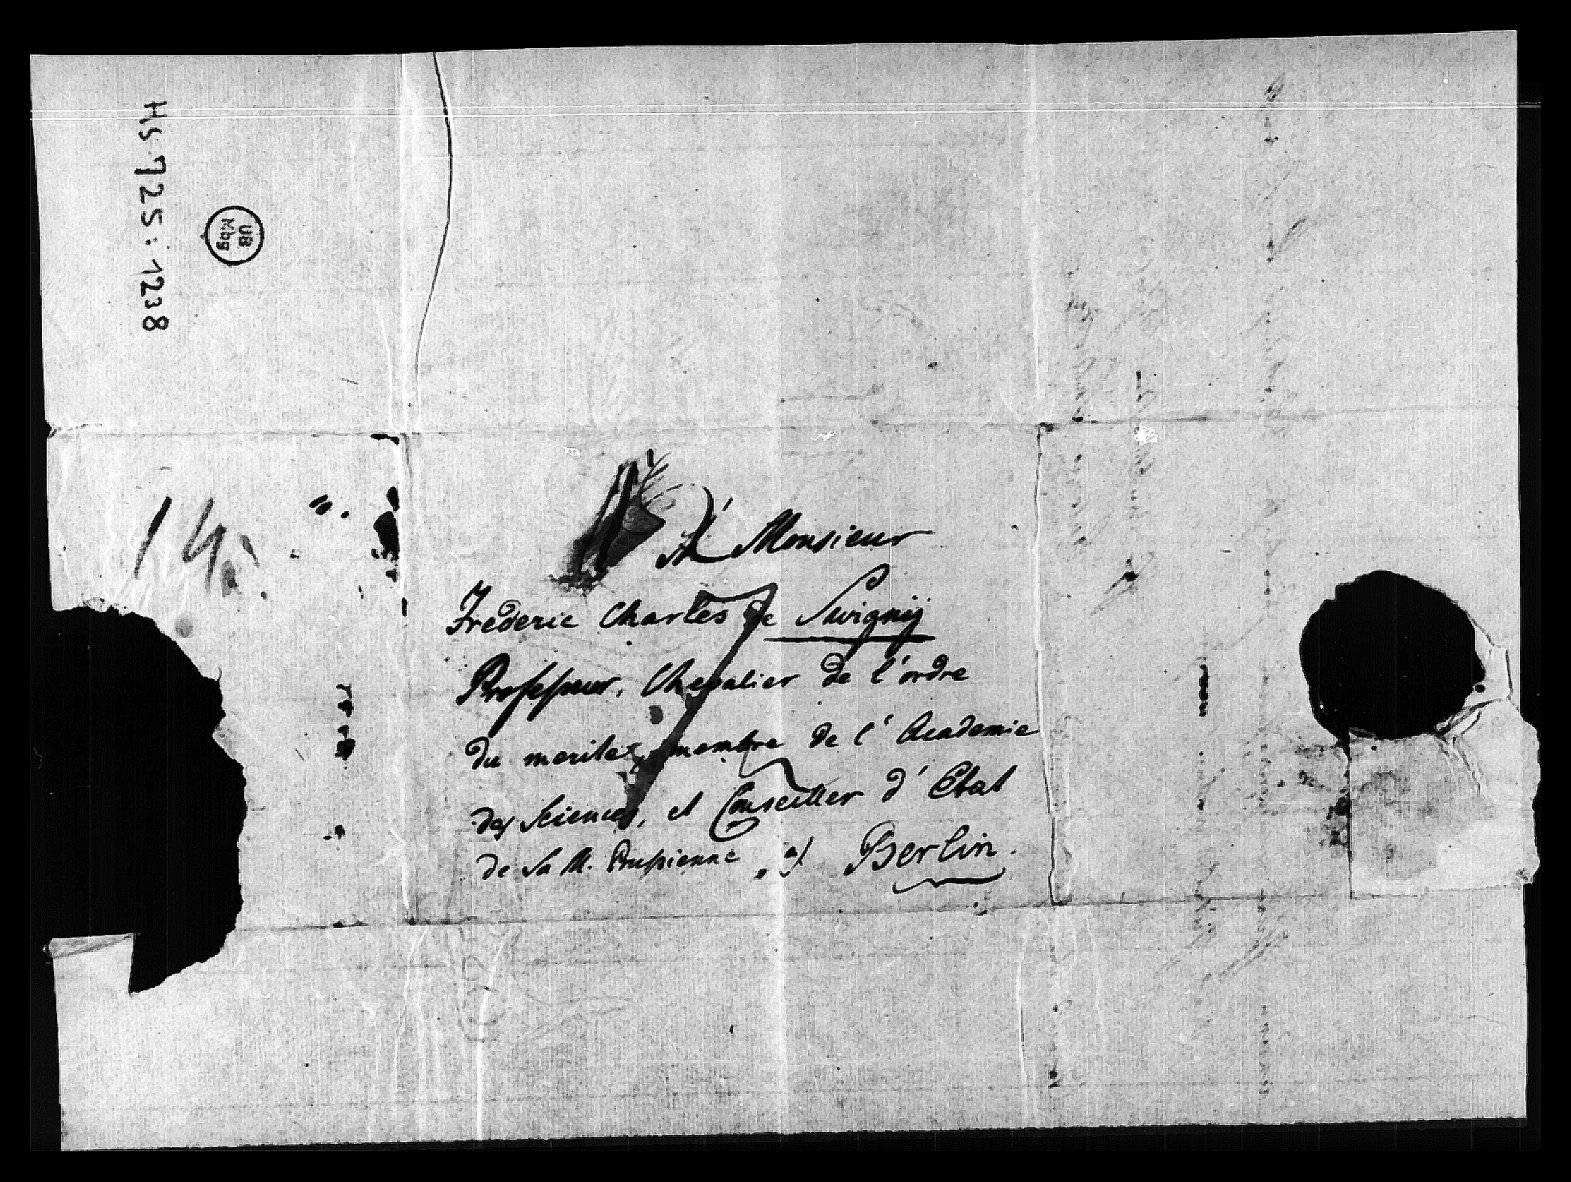 Hs 725:1238
UB
Mbg
14.
A' Monsieur
Frederic Charles de Savigny
Professeur, Chevalier de l'ordre
du merite, membre de l'Academie
des Sciences, et Conseiller d'Etat
de Sa M. Prussienne, a/ Berlin.